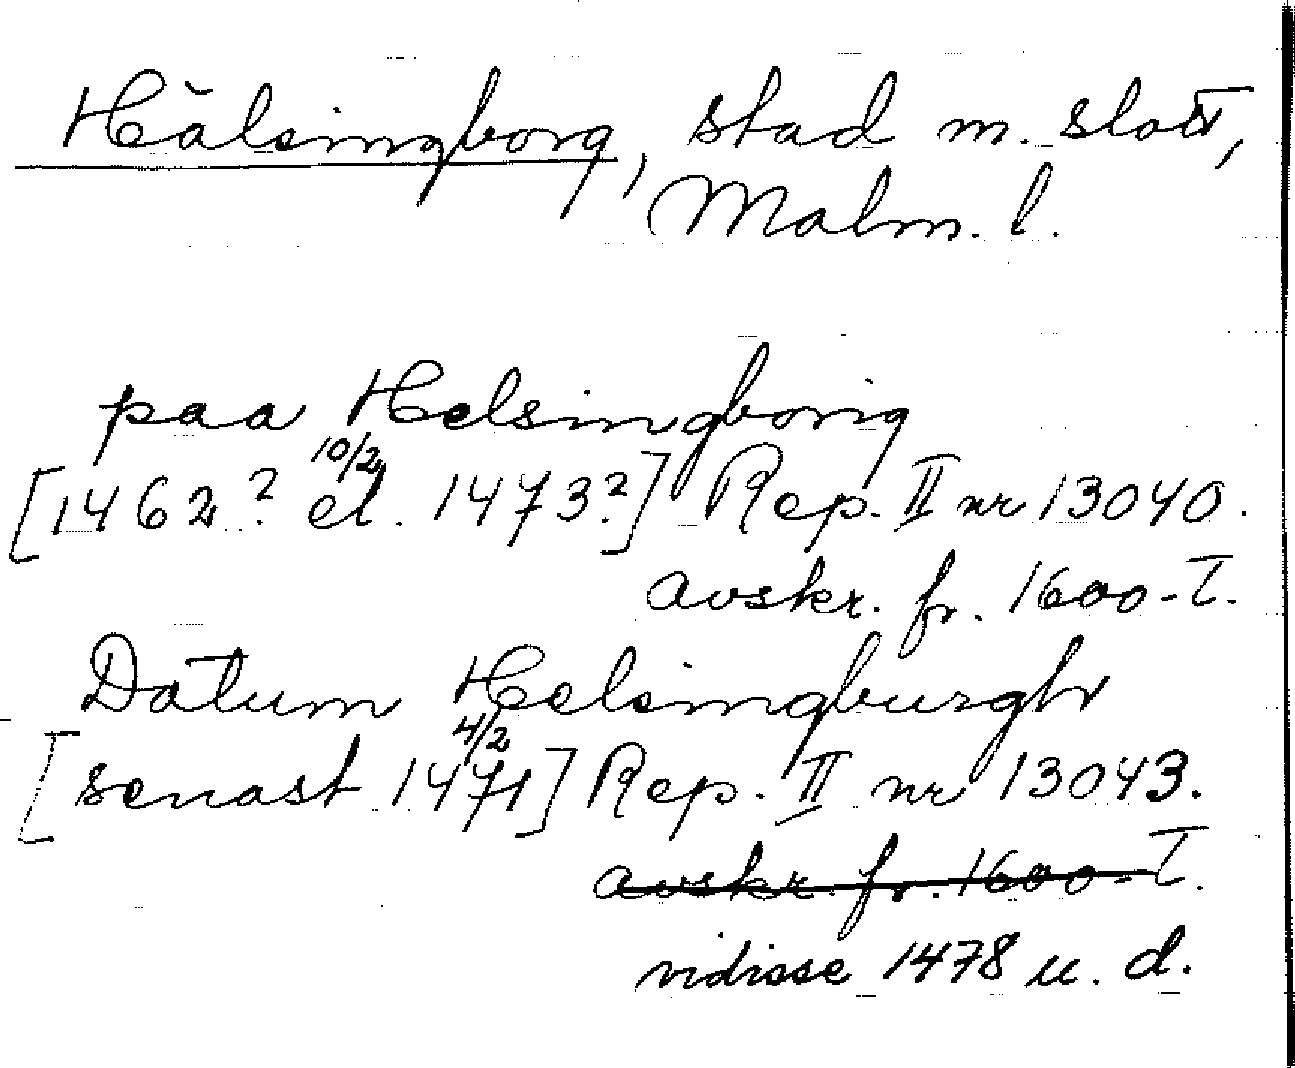 Hälsingborg, stad m. slott,
Malm. l.
paa Helsingborig
10/2
[1462? el. 1473?] Rep. II nr 13040.
avskr. fr. 1600-T.
Datum Helsingburgh
4/2
[senast 1471] Rep. II nr 13043.
avskr. fr. 1600-T.
vidisse 1478 u. d.